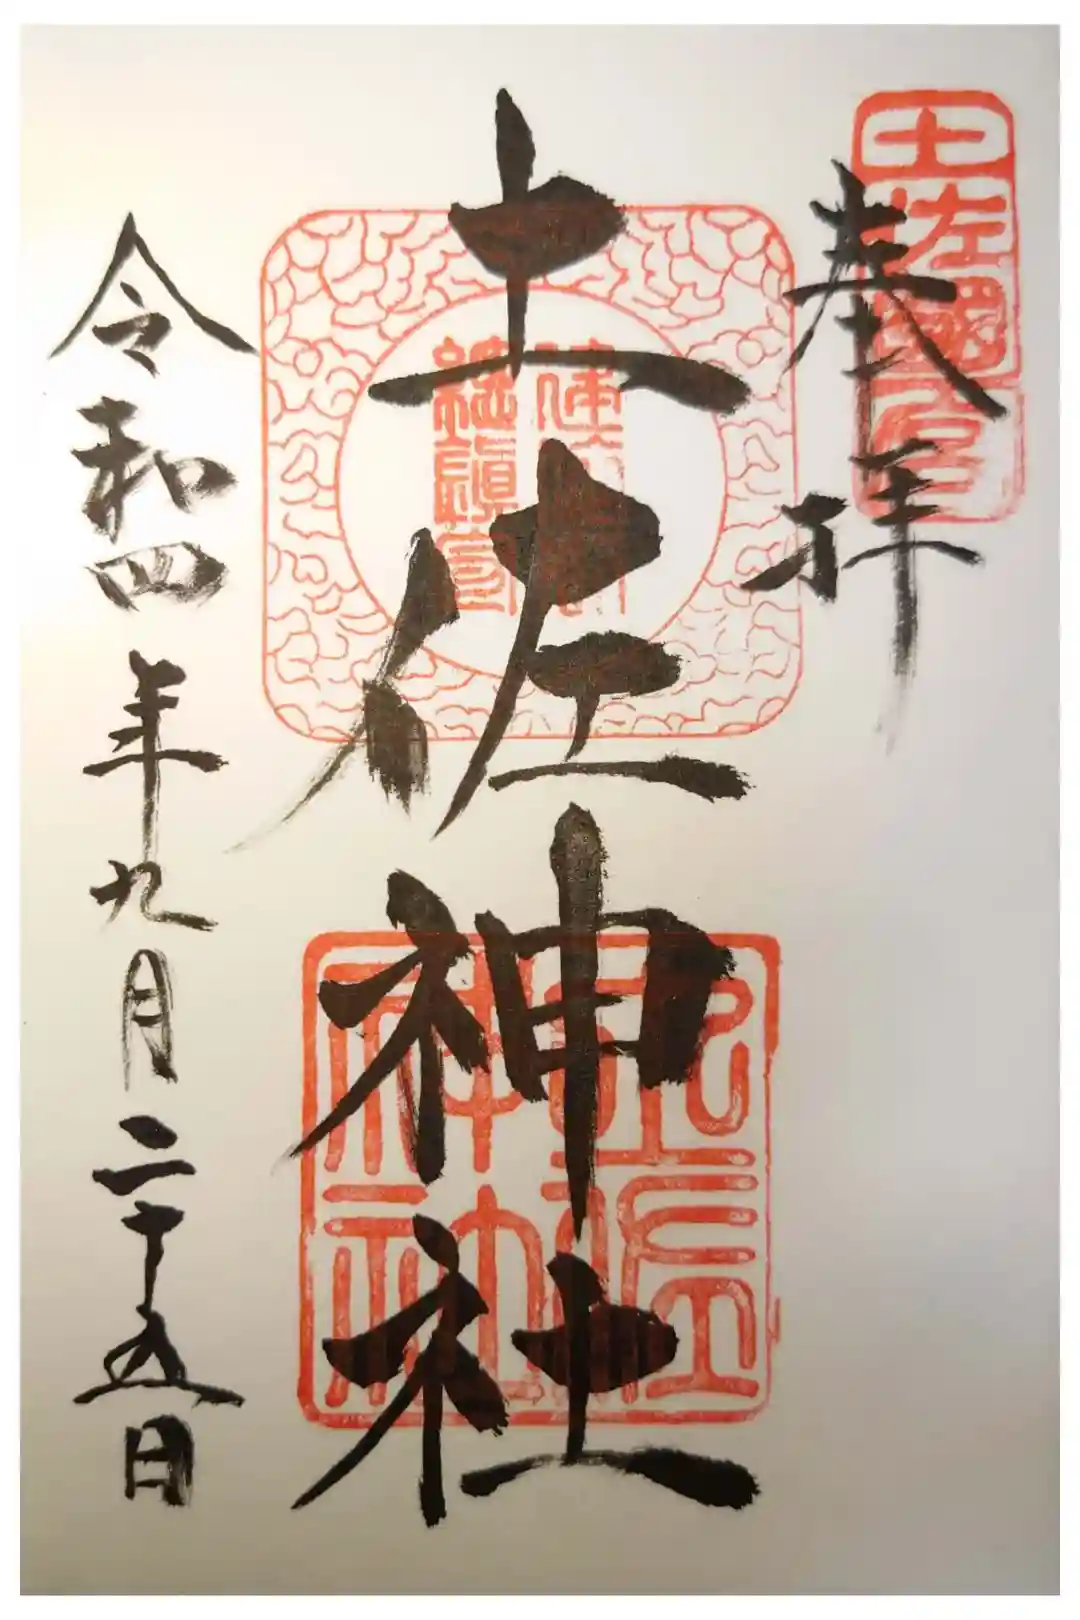 奉拝
土佐神社
令和四年九月二十五日
土佐國一宮
土佐神社